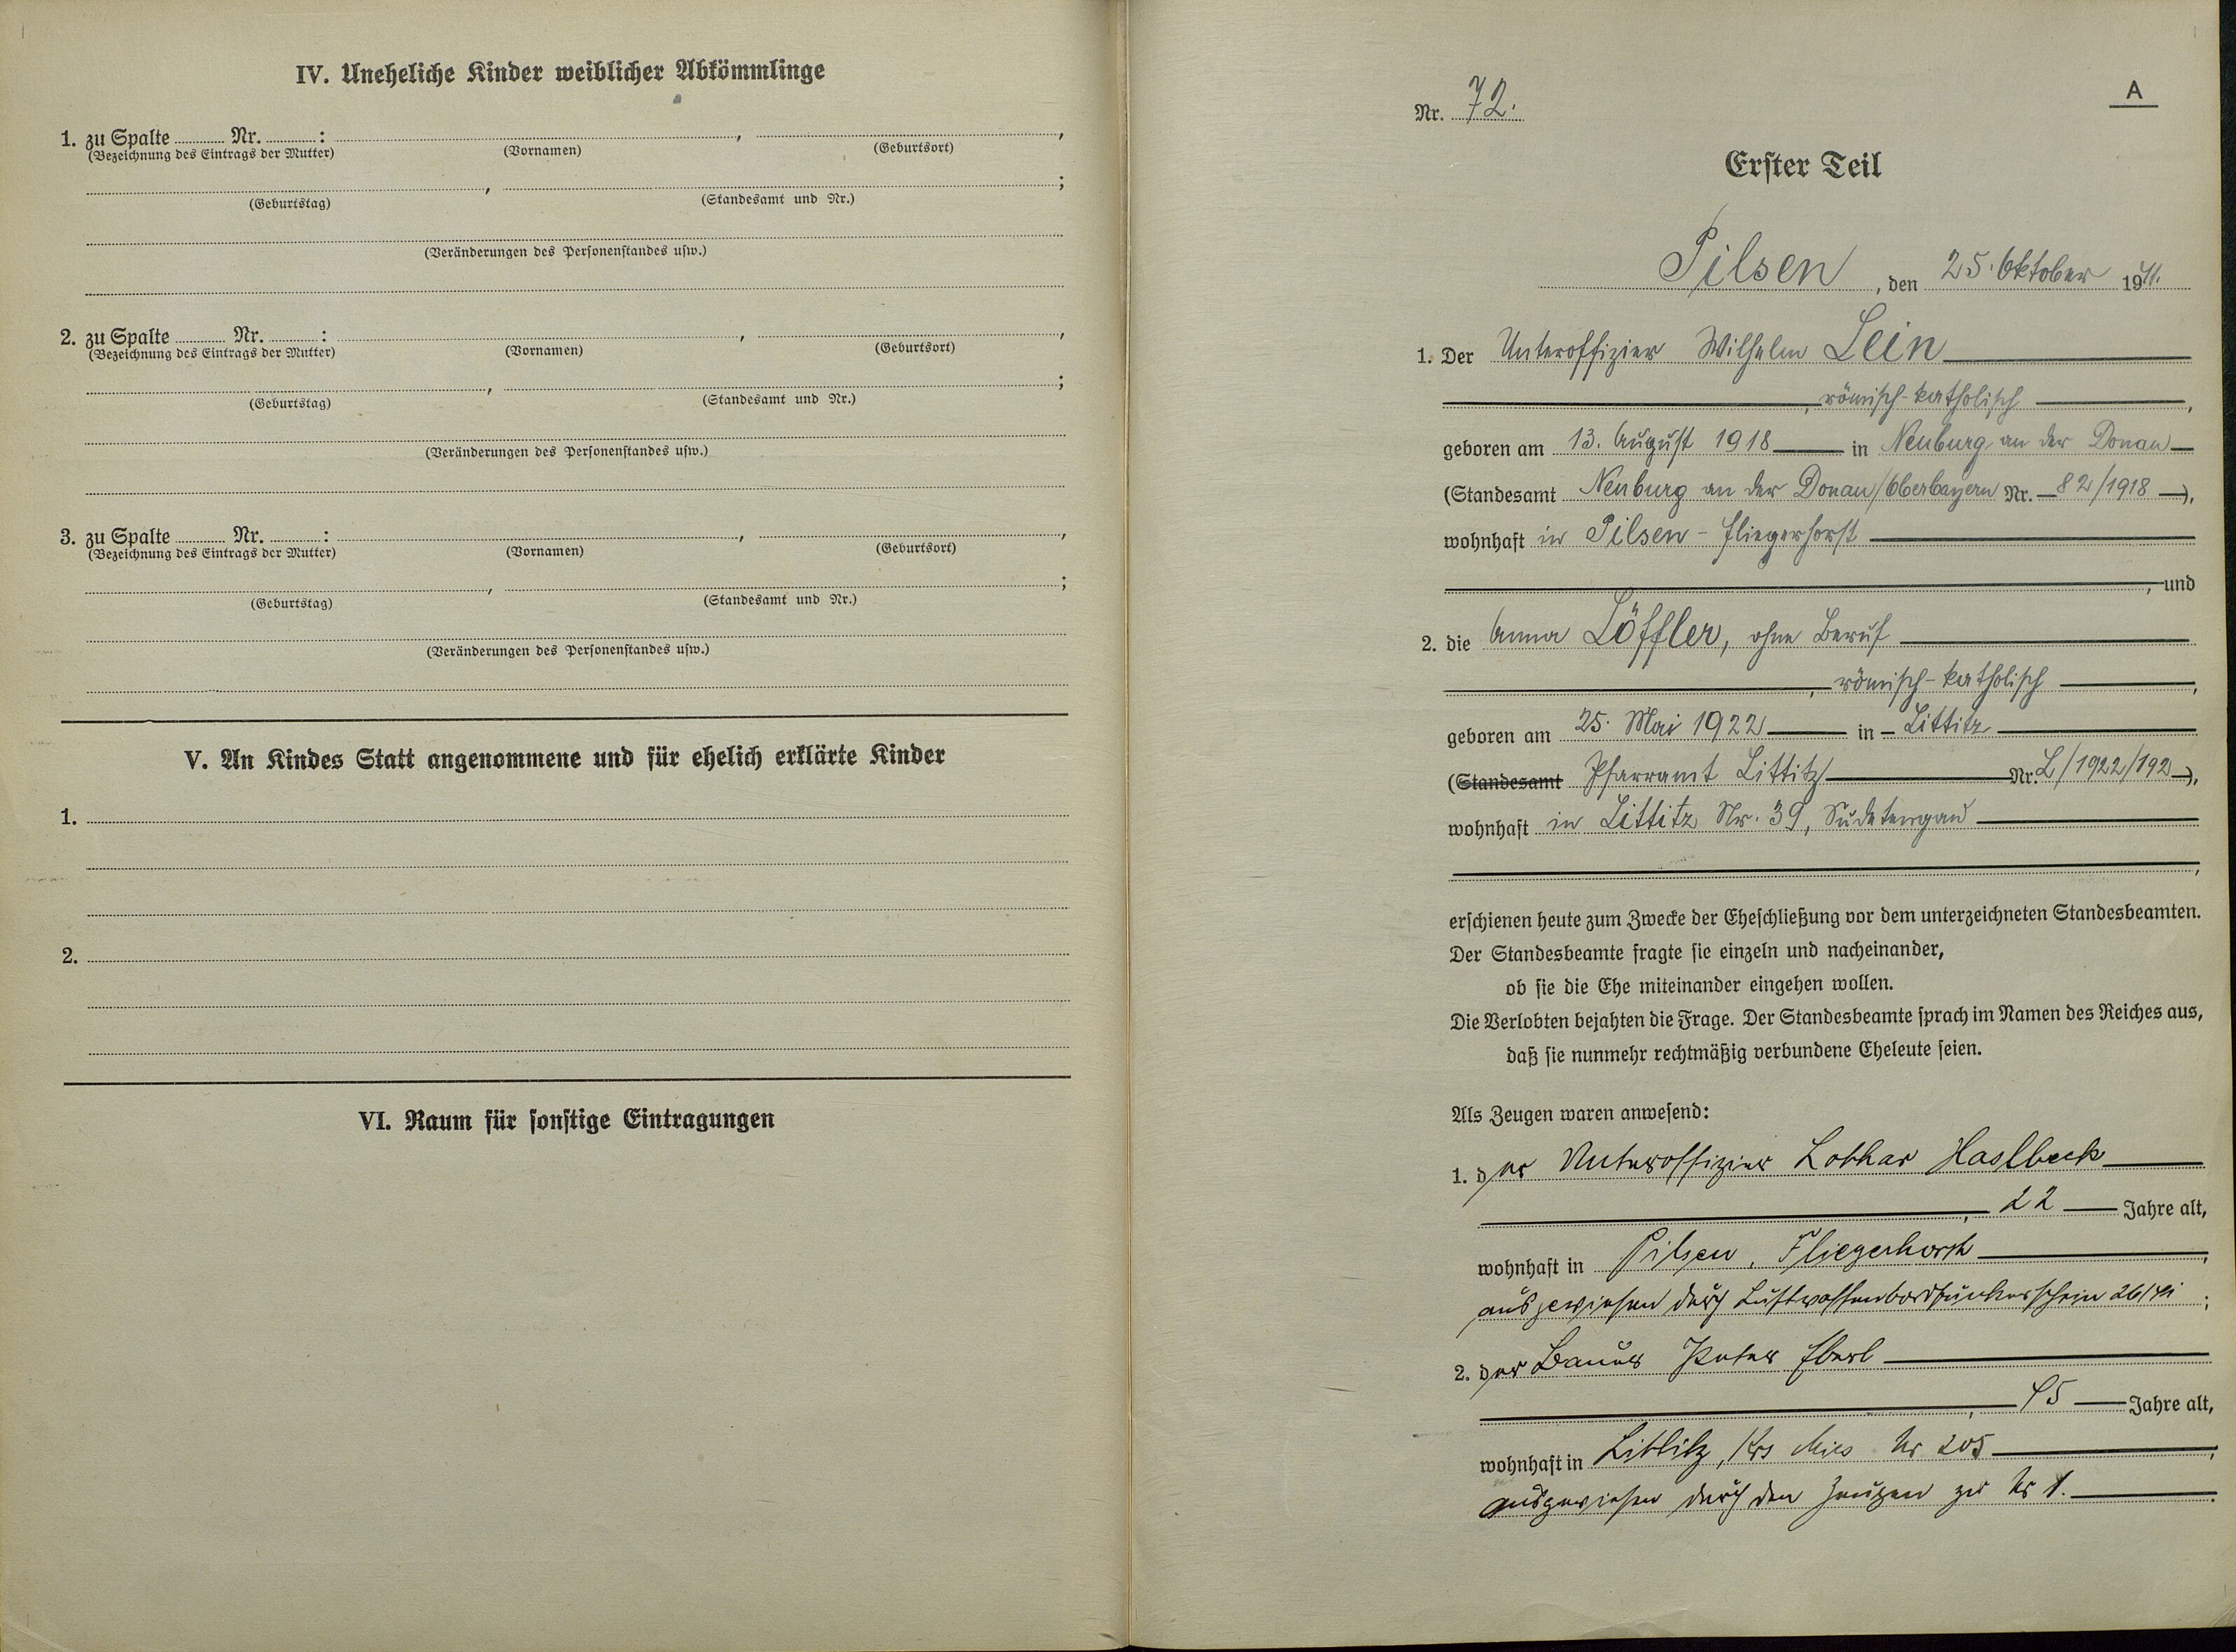 IV. Uneheliche Kinder weiblicher Abkömmlinge
1. zu Spalte ........ Nr. ........ : ........ , ........ ,
(Bezeichnung des Eintrags der Mutter) (Vornamen) (Geburtsort)
........ , ........ ;
(Geburtstag) (Standesamt und Nr.)
(Veränderungen des Personenstandes usw.)
2. zu Spalte ........ Nr. ........ : ........ , ........ ,
(Bezeichnung des Eintrags der Mutter) (Vornamen) (Geburtsort)
........ , ........ ;
(Geburtstag) (Standesamt und Nr.)
(Veränderungen des Personenstandes usw.)
3. zu Spalte ........ Nr. ........ : ........ , ........ ,
(Bezeichnung des Eintrags der Mutter) (Vornamen) (Geburtsort)
........ , ........ ;
(Geburtstag) (Standesamt und Nr.)
(Veränderungen des Personenstandes usw.)
V. An Kindes Statt angenommene und für ehelich erklärte Kinder
1.
2.
VI. Raum für sonstige Eintragungen
A
Nr. 72.
Erster Teil
Pilsen, den 25. Oktober 1941.
1. Der Unteroffizier Wilhelm Lein
, römisch-katholisch ,
geboren am 13. August 1918 in Neuburg an der Donau
(Standesamt Neuburg an der Donau/Oberbayern Nr. 82/1918),
wohnhaft in Pilsen - Fliegerhorst
, und
2. die Anna Löffler, ohne Beruf
, römisch-katholisch ,
geboren am 25. Mai 1922 in Littitz
(Standesamt Pfarramt Littitz Nr. L/1922/192),
wohnhaft in Littitz Nr. 39, Sudetengau
,
erschienen heute zum Zwecke der Eheschließung vor dem unterzeichneten Standesbeamten.
Der Standesbeamte fragte sie einzeln und nacheinander,
ob sie die Ehe miteinander eingehen wollen.
Die Verlobten bejahten die Frage. Der Standesbeamte sprach im Namen des Reiches aus,
daß sie nunmehr rechtmäßig verbundene Eheleute seien.
Als Zeugen waren anwesend:
1. der Unteroffizier Lothar Haslbeck
, 22 Jahre alt,
wohnhaft in Pilsen, Fliegerhorst ,
ausgewiesen durch Luftwaffenbordfunkerschein 26/41 ;
2. der Bauer Peter Eberl
, 45 Jahre alt,
wohnhaft in Littitz, Krs Mies Nr 205 ,
ausgewiesen durch den Zeugen zu Nr 1. .